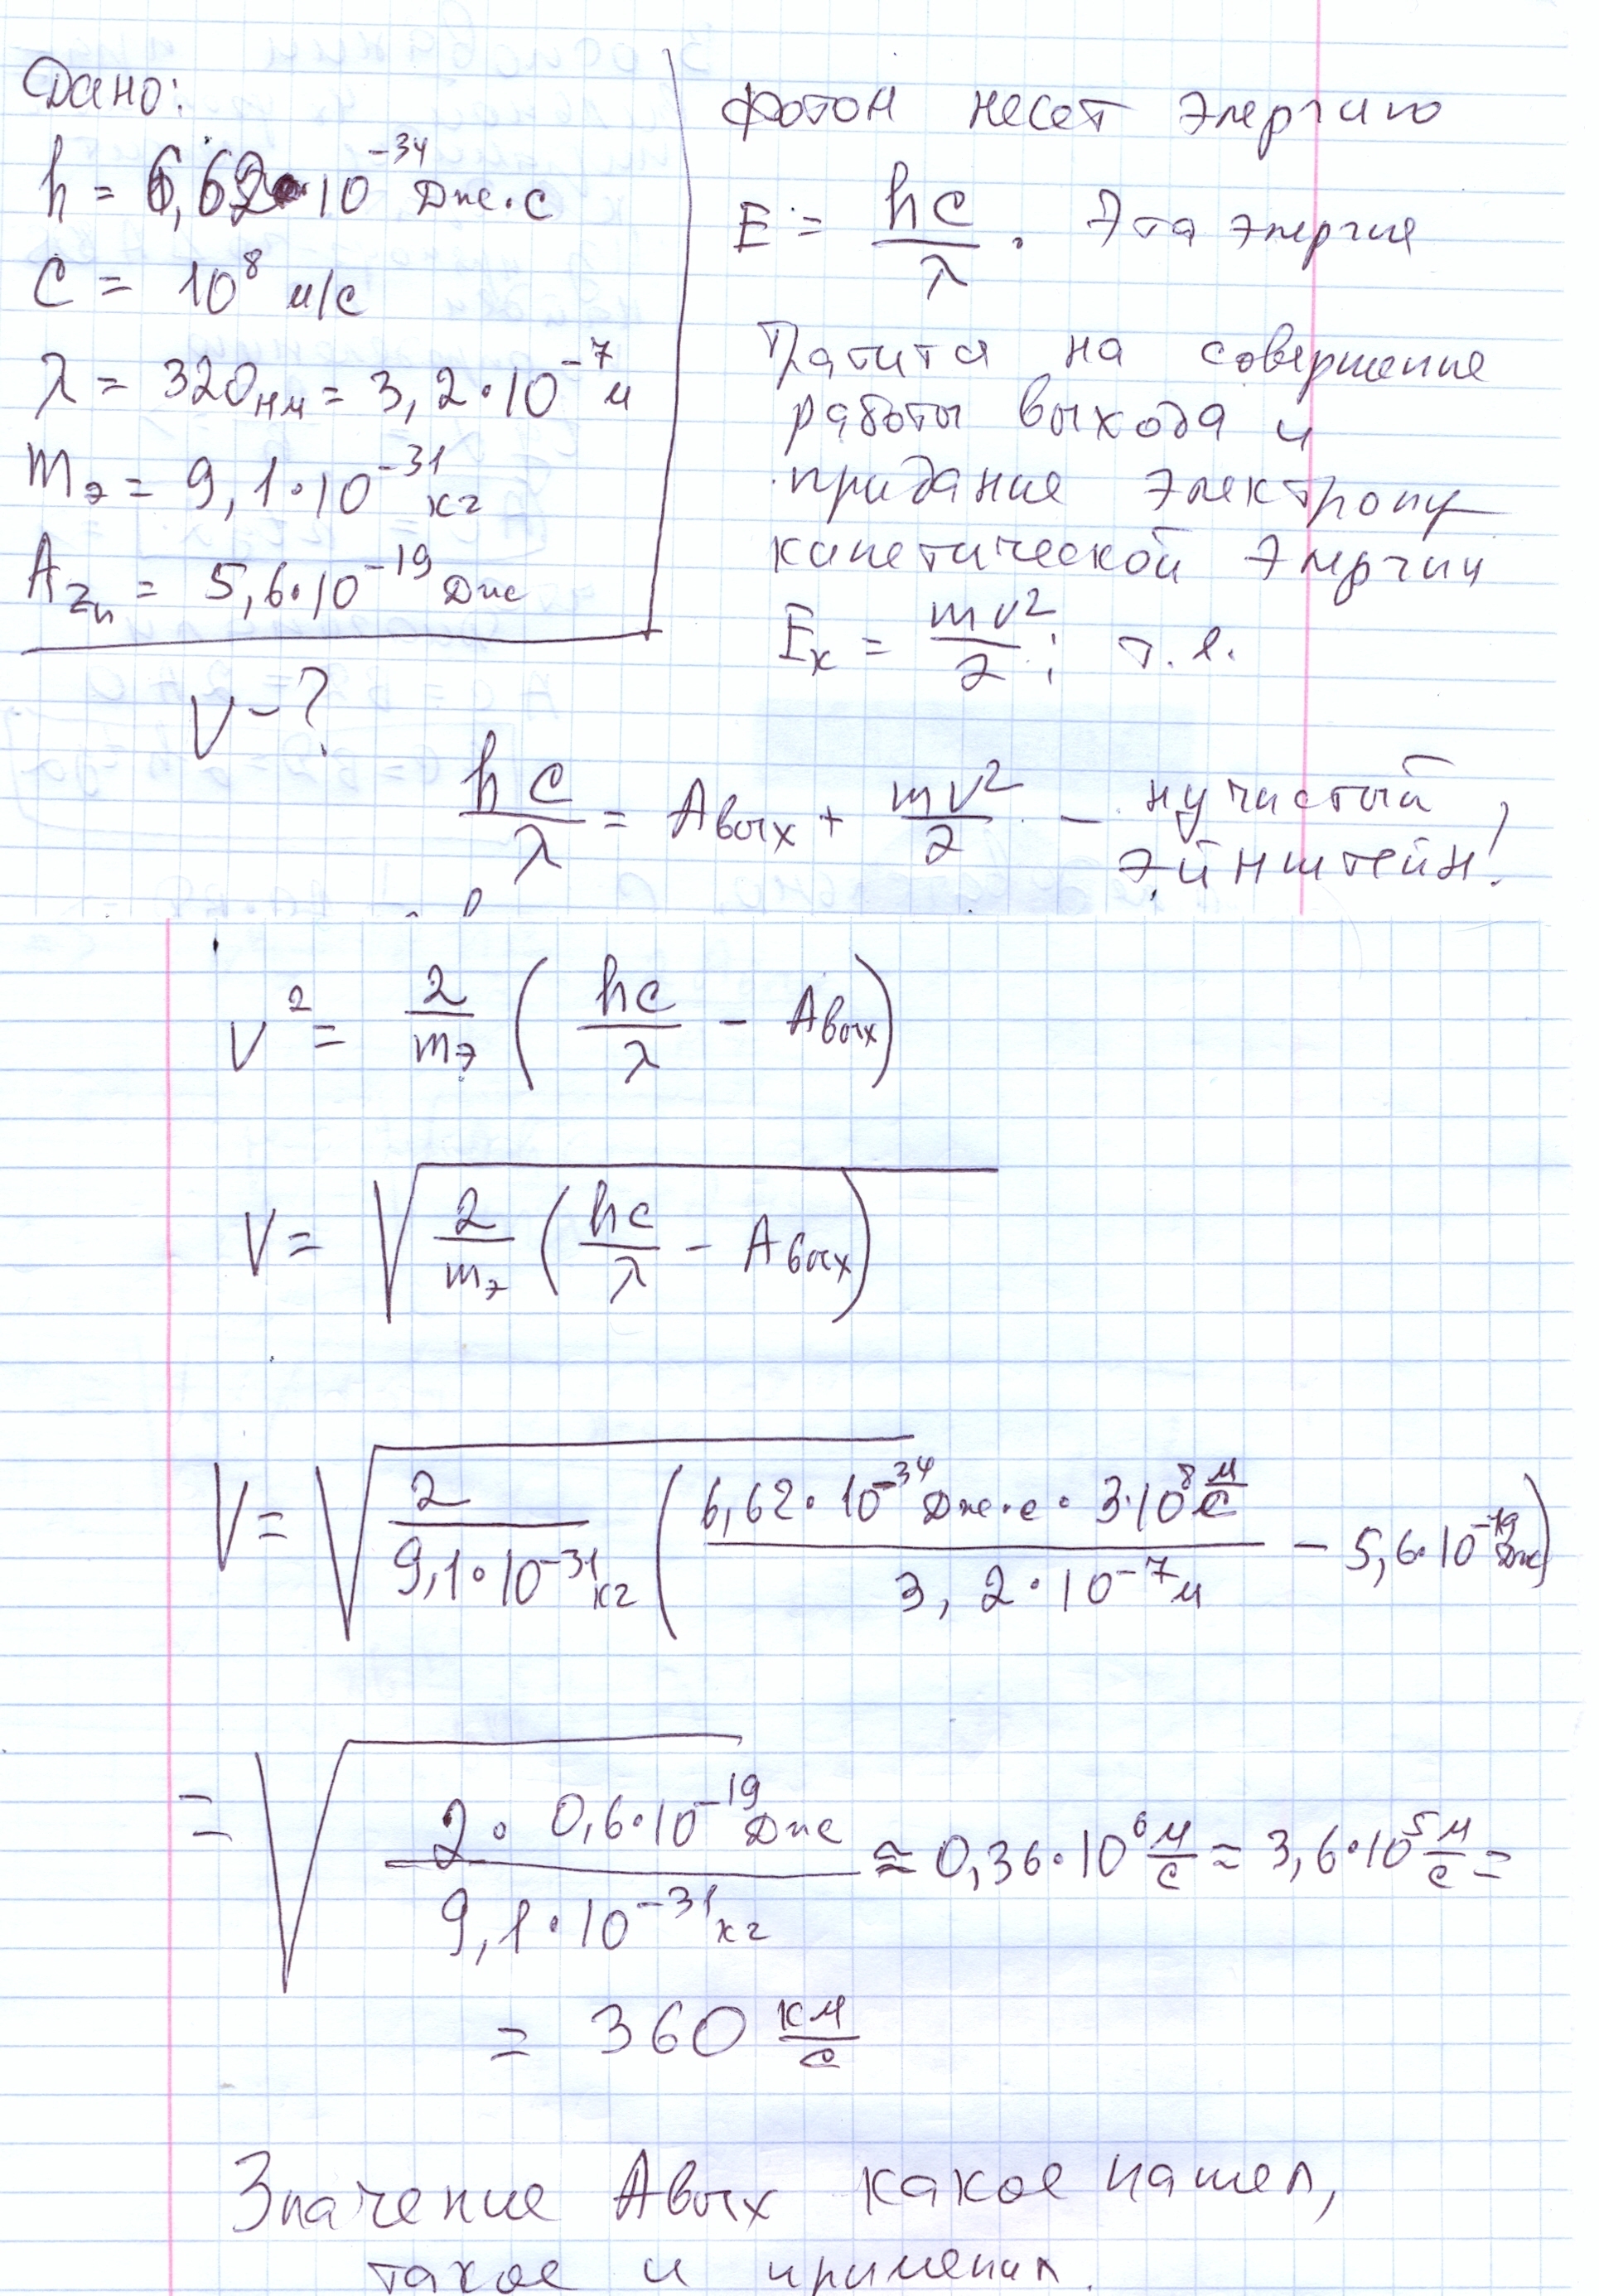 Дано:
h = 6,62·10⁻³⁴ Дж·с
c = 10⁸ м/с
λ = 320нм = 3,2·10⁻⁷м
mэ = 9,1·10⁻³¹ кг
A_Zn = 5,6·10⁻¹⁹ Дж
V-?
Фотон несет энергию
E = hc/λ. Эта энергия
тратится на совершение
работы выхода и
придание электрону
кинетической энергии
Eк = mv²/2; т.е.
hc/λ = Aвых + mv²/2 - ну чистый
Эйнштейн!
V² = 2/mэ (hc/λ - Aвых)
V = √(2/mэ (hc/λ - Aвых))
V = √(2/(9,1·10⁻³¹кг) (6,62·10⁻³⁴Дж·с·3·10⁸ м/с / 3,2·10⁻⁷м - 5,6·10⁻¹⁹Дж))
= √(2·0,6·10⁻¹⁹Дж / 9,1·10⁻³¹кг) ≈ 0,36·10⁶ м/с ≈ 3,6·10⁵ м/с =
= 360 км/с
Значение Aвых какое нашел,
такое и применил.